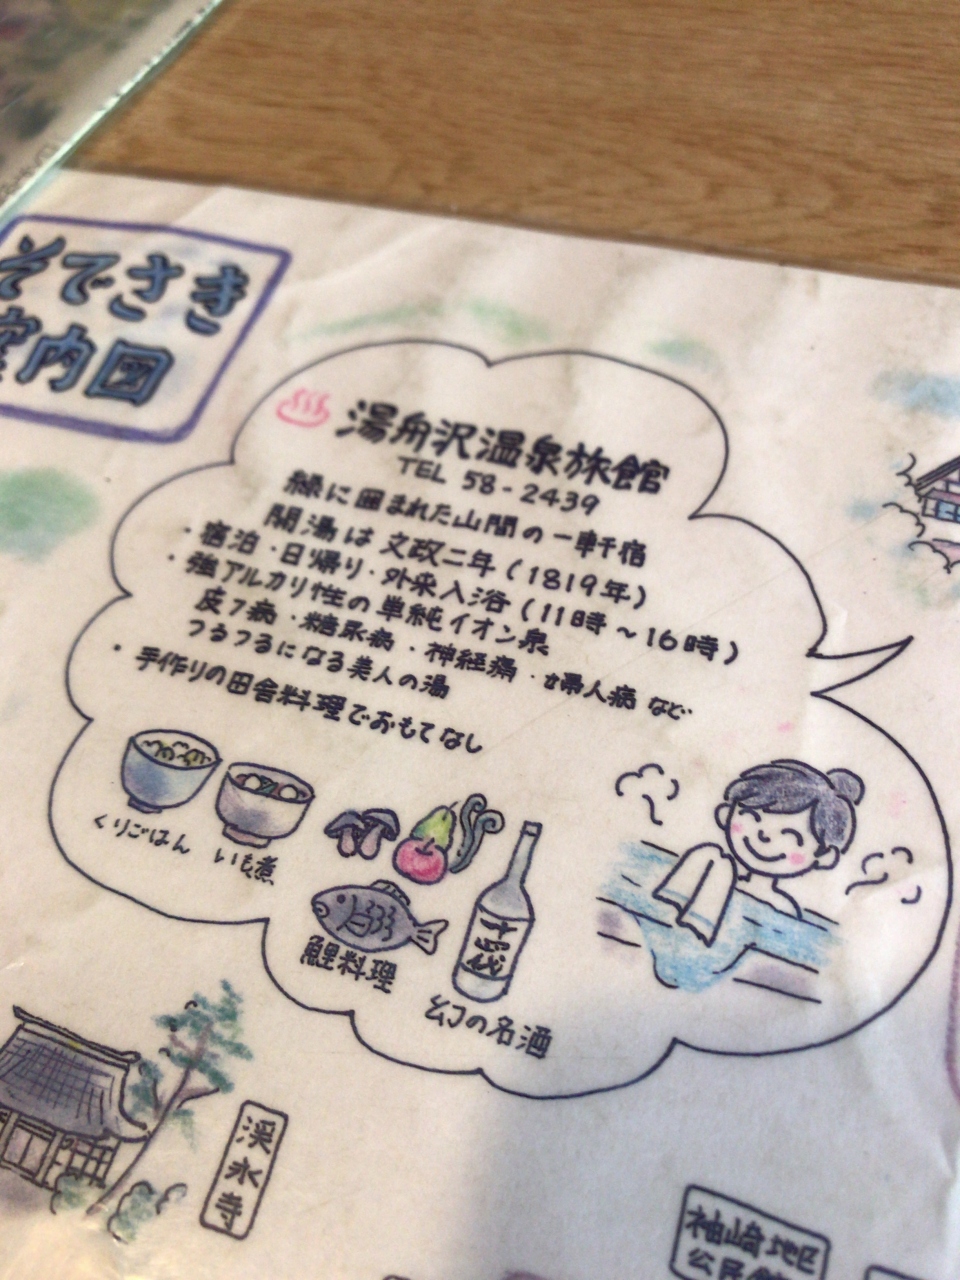 そでさき
案内図
♨ 湯舟沢温泉旅館
TEL 58-2439
緑に囲まれた山間の一軒宿
開湯は文政二年(1819年)
・宿泊・日帰り・外来入浴(11時～16時)
・強アルカリ性の単純イオン泉
皮フ病・糖尿病・神経痛・婦人病など
つるつるになる美人の湯
・手作りの田舎料理でおもてなし
くりごはん
いも煮
鯉料理
十四代
幻の名酒
渓永寺
袖崎地区
公民館